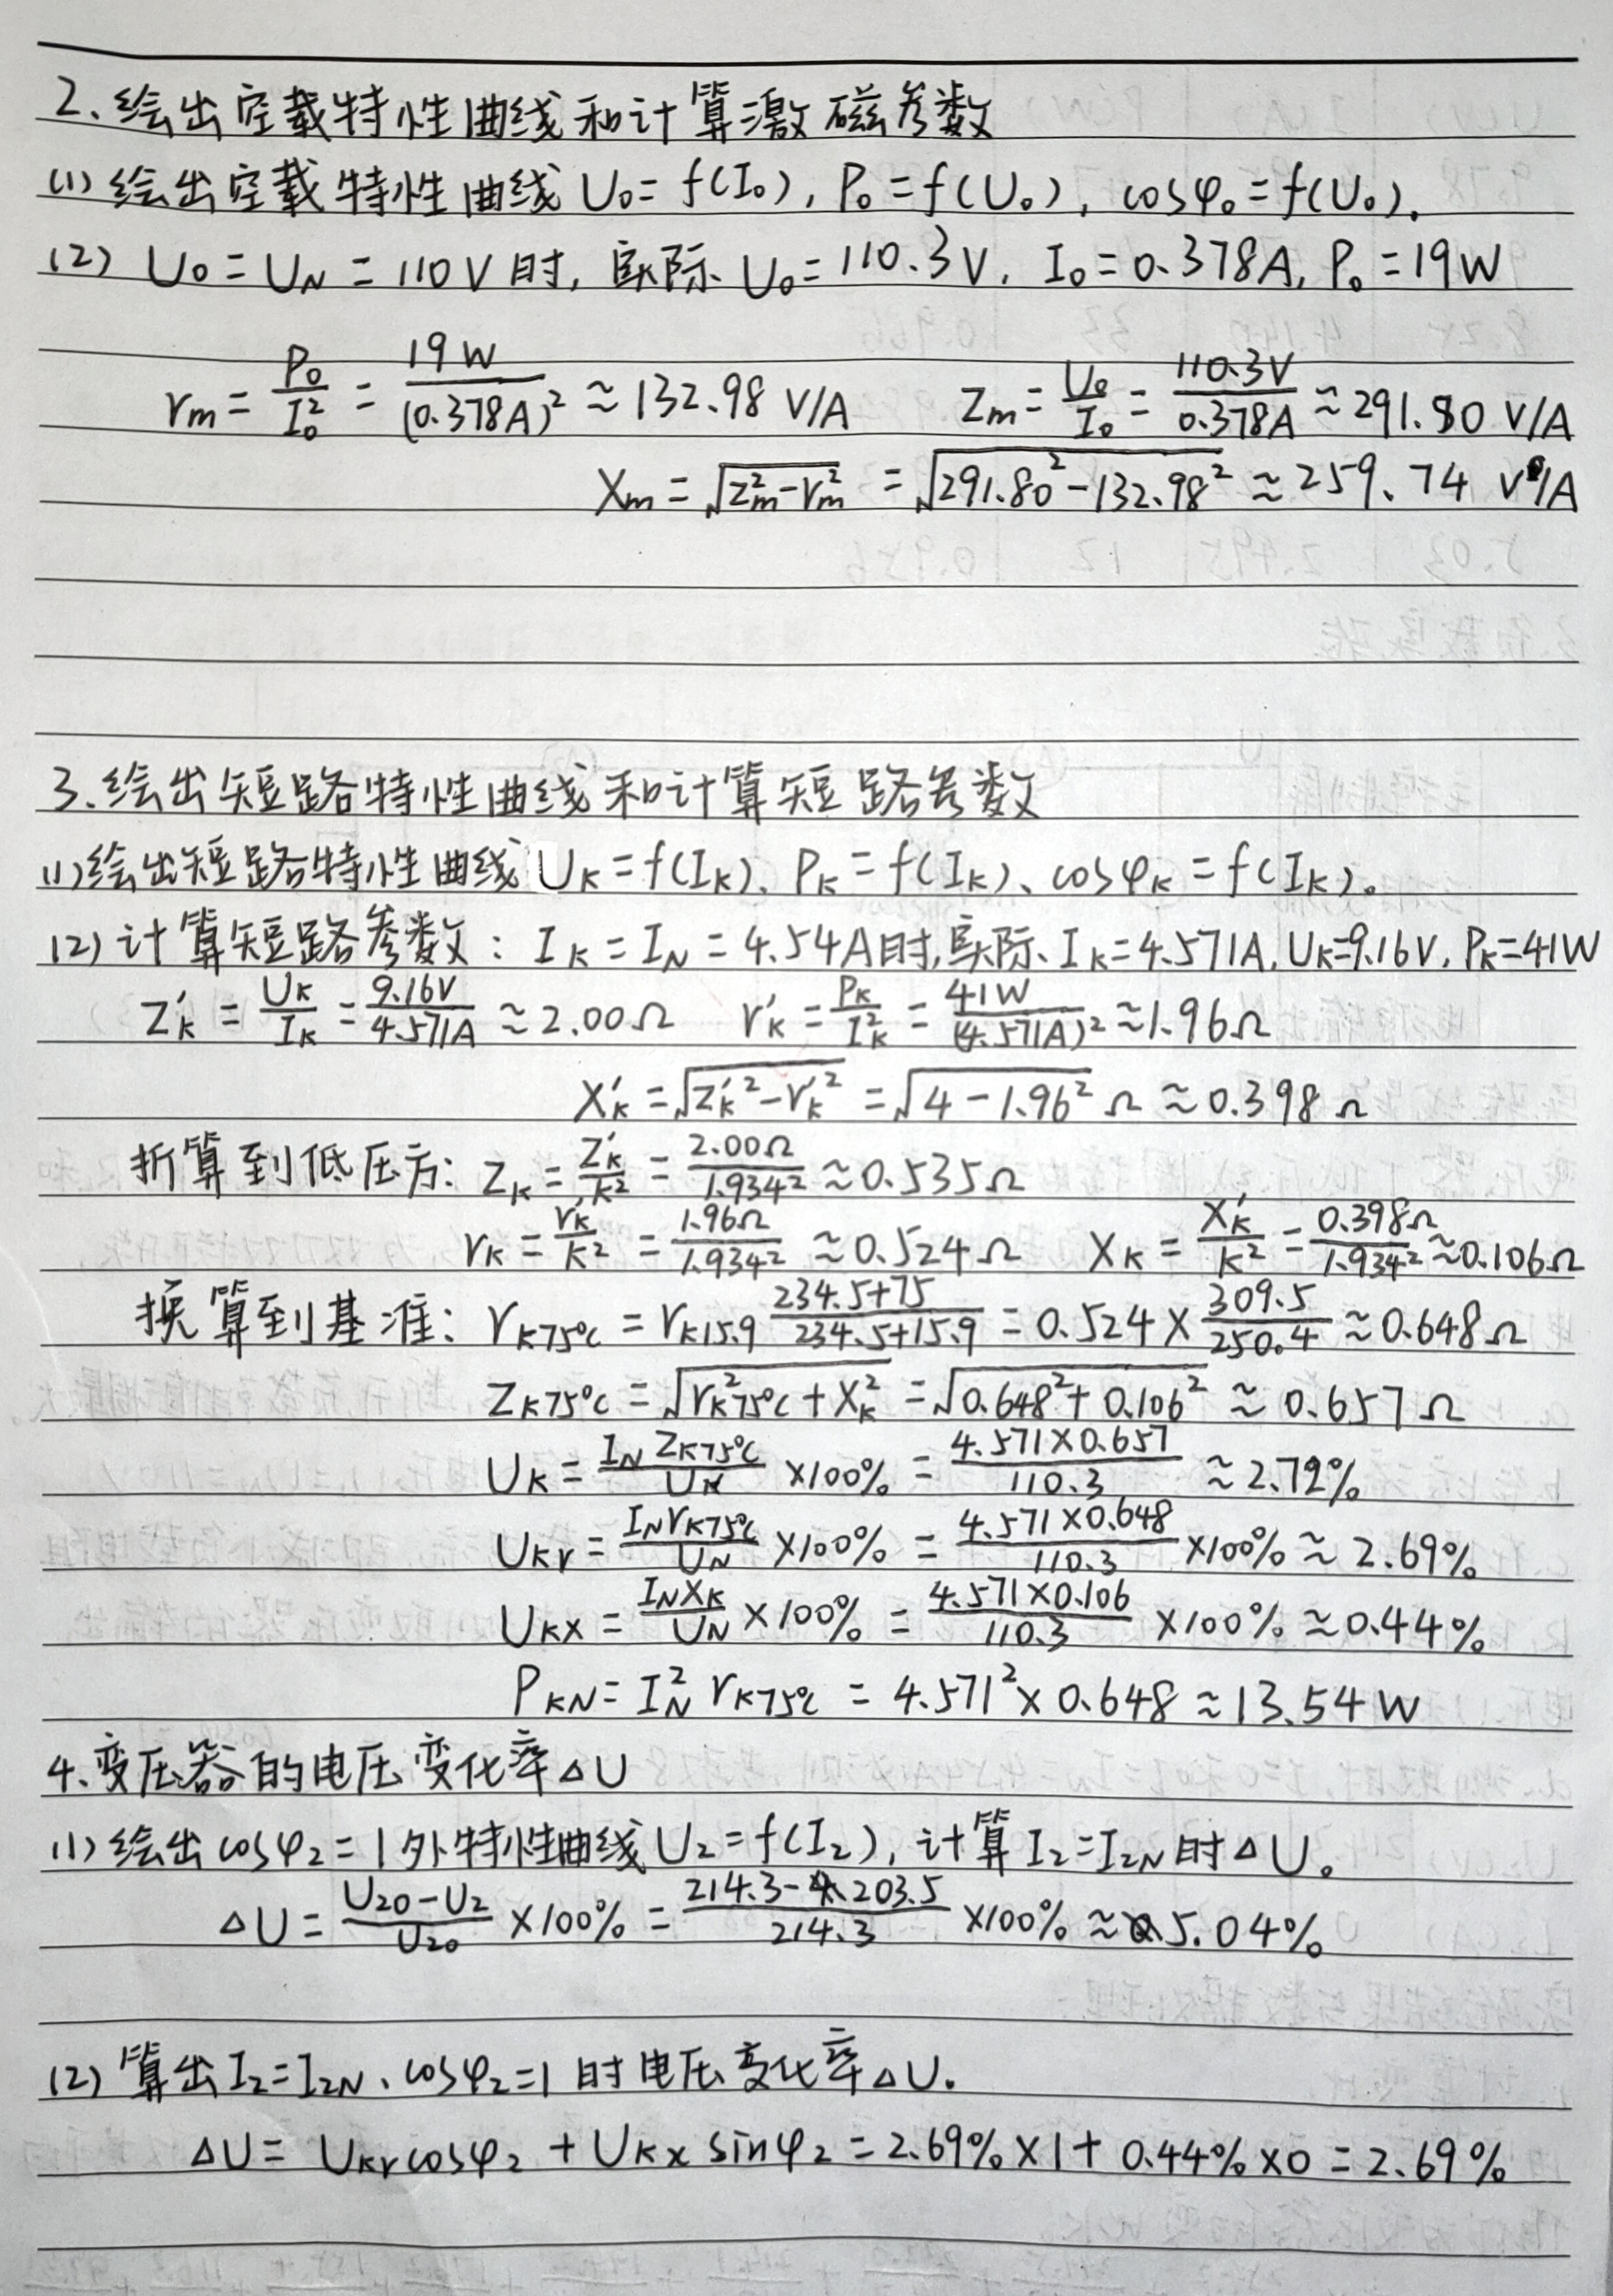 2、绘出空载特性曲线和计算激磁参数
(1) 绘出空载特性曲线 U₀=f(I₀), P₀=f(U₀), cosφ₀=f(U₀).
(2) U₀=U_N=110V时, 实际 U₀=110.3V, I₀=0.378A, P₀=19W
r_m = P₀/I₀² = 19W/(0.378A)² ≈ 132.98 V/A    Z_m = U₀/I₀ = 110.3V/0.378A ≈ 291.80 V/A
X_m = √(Z_m²-r_m²) = √(291.80²-132.98²) ≈ 259.74 V/A
3、绘出短路特性曲线和计算短路参数
(1) 绘出短路特性曲线 U_K=f(I_K)、P_K=f(I_K)、cosφ_K=f(I_K)。
(2) 计算短路参数: I_K=I_N=4.54A时, 实际 I_K=4.571A, U_K=9.16V, P_K=41W
Z'_K = U_K/I_K = 9.16V/4.571A ≈ 2.00Ω    r'_K = P_K/I_K² = 41W/(4.571A)² ≈ 1.96Ω
X'_K = √(Z'_K²-r'_K²) = √(4-1.96²) Ω ≈ 0.398Ω
折算到低压方: Z_K = Z'_K/K² = 2.00Ω/1.934² ≈ 0.535Ω
r_K = r'_K/K² = 1.96Ω/1.934² ≈ 0.524Ω    X_K = X'_K/K² = 0.398Ω/1.934² ≈ 0.106Ω
换算到基准: r_K75℃ = r_K15.9 (234.5+75)/(234.5+15.9) = 0.524 × 309.5/250.4 ≈ 0.648Ω
Z_K75℃ = √(r_K75℃²+X_K²) = √(0.648²+0.106²) ≈ 0.657Ω
U_K = I_N Z_K75℃/U_N ×100% = 4.571×0.657/110.3 ≈ 2.72%
U_Kr = I_N r_K75℃/U_N ×100% = 4.571×0.648/110.3 ×100% ≈ 2.69%
U_KX = I_N X_K/U_N ×100% = 4.571×0.106/110.3 ×100% ≈ 0.44%
P_KN = I_N² r_K75℃ = 4.571²×0.648 ≈ 13.54W
4、变压器的电压变化率△U
(1) 绘出cosφ₂=1外特性曲线U₂=f(I₂), 计算I₂=I₂N时△U。
△U = (U₂₀-U₂)/U₂₀ ×100% = (214.3-203.5)/214.3 ×100% ≈ 5.04%
(2) 算出I₂=I₂N、cosφ₂=1时电压变化率△U.
△U = U_Kr cosφ₂ + U_Kx sinφ₂ = 2.69%×1+0.44%×0 = 2.69%